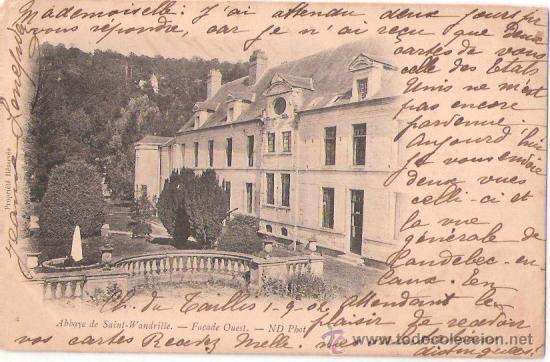 Mademoiselle: J'ai attendu deux jours pr
vous répondre, car je n'ai reçu que deux
cartes de vous
celle des Etats
Unis ne m'est
pas encore
parvenue.
Aujourd'hui
je vous envoie
deux vues
celle-ci et
la vue
générale de
Caudebec-en-
Caux. En
attendant le
plaisir de recevoir
vos cartes Recevez Melle. mes
Ch. du Taillis 1-9-02
Propriété Réservée
Abbaye de Saint-Wandrille. — Façade Ouest. — ND Phot
todocoleccion.net